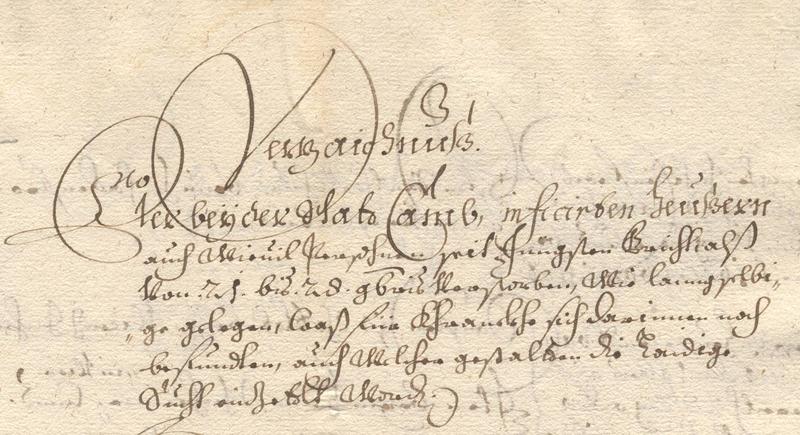 Verzaichnuß.
Der bey der Statt Camb, inficirten Heußern
auch Wieuil Persohnen seit Jüngsten Berichts
Von 21. bis 28. 9bris Verstorben, Wie lanng selbi-
ge gelegen, waß für Khranckhe sich darinnen noch
befundten, auch Welcher gestalten die Laidige
Sucht Word